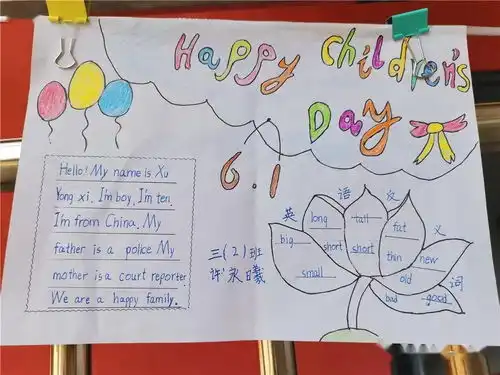 Happy Children's
Day
6.1
Hello! My name is Xu
Yong xi. I'm boy. I'm ten.
I'm from China. My
father is a police My
mother is a court reporter.
We are a happy family.
三(2)班
许永曦
英语反义词
big
small
long
short
tall
short
fat
thin
new
old
bad
good